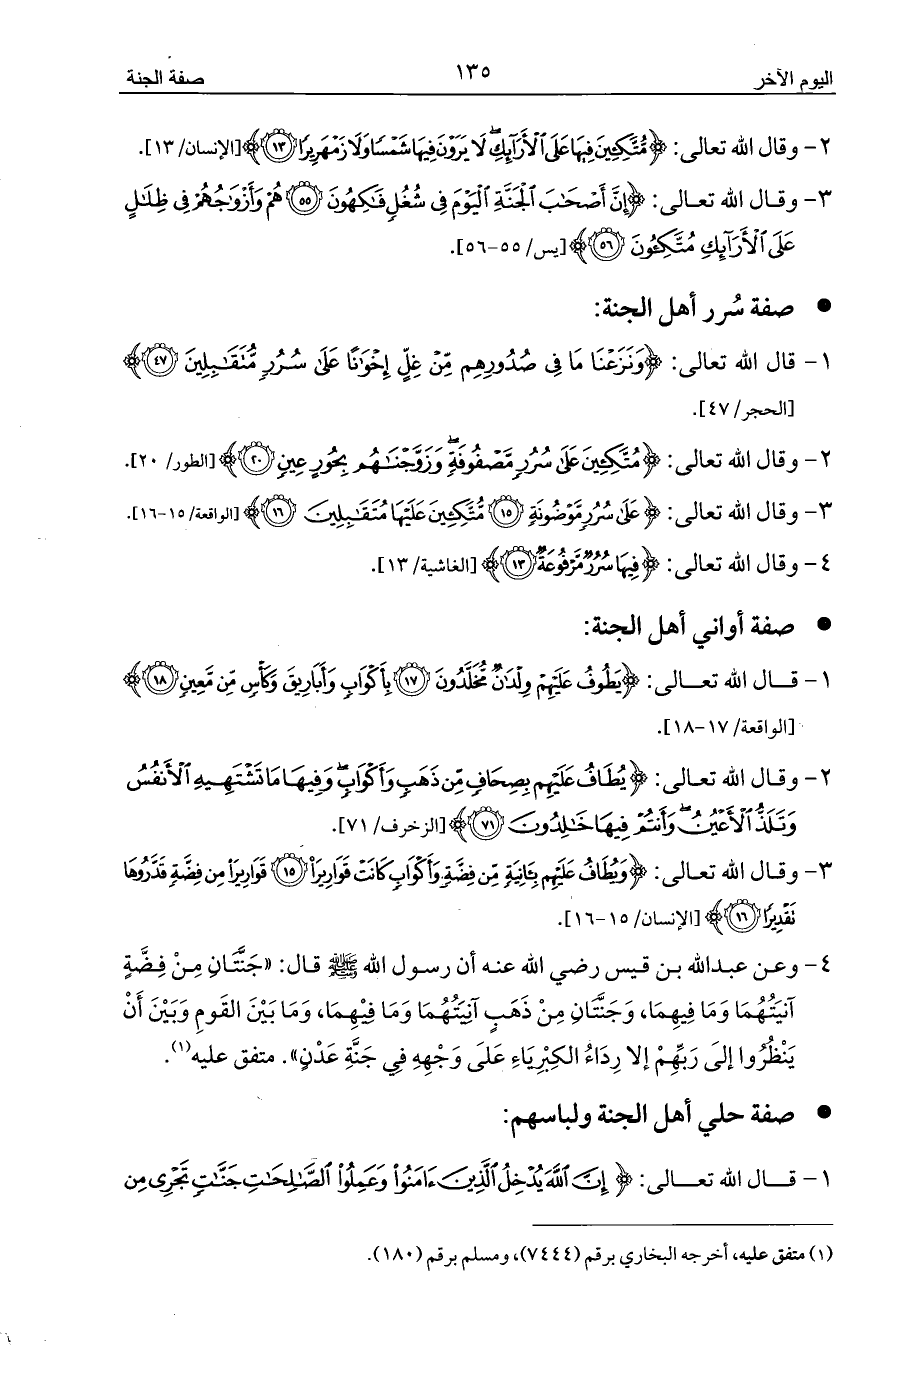 اليوم الآخر ١٣٥ صفة الجنة
٢- وقال الله تعالى: ﴿مُّتَّكِئِينَ فِيهَا عَلَى ٱلْأَرَآئِكِ ۖ لَا يَرَوْنَ فِيهَا شَمْسًا وَلَا زَمْهَرِيرًا ١٣﴾ [الإنسان/ ١٣].
٣- وقال الله تعالى: ﴿إِنَّ أَصْحَٰبَ ٱلْجَنَّةِ ٱلْيَوْمَ فِى شُغُلٍ فَٰكِهُونَ ٥٥ هُمْ وَأَزْوَٰجُهُمْ فِى ظِلَٰلٍ
عَلَى ٱلْأَرَآئِكِ مُتَّكِـُٔونَ ٥٦﴾ [يس/ ٥٥-٥٦].
● صفة سُرر أهل الجنة:
١- قال الله تعالى: ﴿وَنَزَعْنَا مَا فِى صُدُورِهِم مِّنْ غِلٍّ إِخْوَٰنًا عَلَىٰ سُرُرٍ مُّتَقَٰبِلِينَ ٤٧﴾
[الحجر/ ٤٧].
٢- وقال الله تعالى: ﴿مُتَّكِـِٔينَ عَلَىٰ سُرُرٍ مَّصْفُوفَةٍ ۖ وَزَوَّجْنَٰهُم بِحُورٍ عِينٍ ٢٠﴾ [الطور/ ٢٠].
٣- وقال الله تعالى: ﴿عَلَىٰ سُرُرٍ مَّوْضُونَةٍ ١٥ مُّتَّكِـِٔينَ عَلَيْهَا مُتَقَٰبِلِينَ ١٦﴾ [الواقعة/ ١٥-١٦].
٤- وقال الله تعالى: ﴿فِيهَا سُرُرٌ مَّرْفُوعَةٌ ١٣﴾ [الغاشية/ ١٣].
● صفة أواني أهل الجنة:
١- قـال الله تعـالى: ﴿يَطُوفُ عَلَيْهِمْ وِلْدَٰنٌ مُّخَلَّدُونَ ١٧ بِأَكْوَابٍ وَأَبَارِيقَ وَكَأْسٍ مِّن مَّعِينٍ ١٨﴾
[الواقعة/ ١٧-١٨].
٢- وقال الله تعالى: ﴿يُطَافُ عَلَيْهِم بِصِحَافٍ مِّن ذَهَبٍ وَأَكْوَابٍ ۖ وَفِيهَا مَا تَشْتَهِيهِ ٱلْأَنفُسُ
وَتَلَذُّ ٱلْأَعْيُنُ ۖ وَأَنتُمْ فِيهَا خَٰلِدُونَ ٧١﴾ [الزخرف/ ٧١].
٣- وقال الله تعالى: ﴿وَيُطَافُ عَلَيْهِم بِـَٔانِيَةٍ مِّن فِضَّةٍ وَأَكْوَابٍ كَانَتْ قَوَارِيرَا۠ ١٥ قَوَارِيرَا۟ مِن فِضَّةٍ قَدَّرُوهَا
تَقْدِيرًا ١٦﴾ [الإنسان/ ١٥-١٦].
٤- وعـن عبدالله بـن قـيس رضـي الله عنـه أن رسـول الله ﷺ قـال: «جَنَّتَـانِ مِـنْ فِضَّةٍ
آنِيَتُهُمَا وَمَا فِيهِمَا، وَجَنَّتَانِ مِنْ ذَهَبٍ آنِيَتُهُمَا وَمَا فِيْهِمَا، وَمَا بَيْنَ القَومِ وَبَيْنَ أَنْ
يَنْظُرُوا إلىَ رَبِّهِمْ إلا رِدَاءُ الكِبْرِيَاءِ عَلَى وَجْهِهِ فِي جَنَّةِ عَدْنٍ». متفق عليه(١).
● صفة حلي أهل الجنة ولباسهم:
١- قـال الله تعـالى: ﴿إِنَّ ٱللَّهَ يُدْخِلُ ٱلَّذِينَ ءَامَنُوا۟ وَعَمِلُوا۟ ٱلصَّٰلِحَٰتِ جَنَّٰتٍ تَجْرِى مِن
(١) متفق عليه، أخرجه البخاري برقم (٧٤٤٤)، ومسلم برقم (١٨٠).